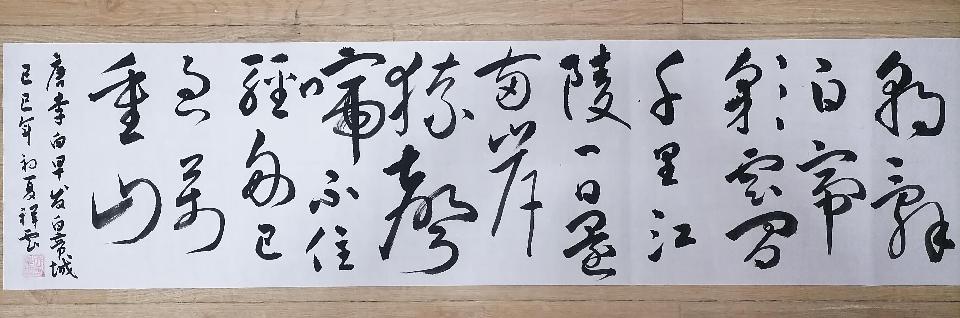 朝辭
白帝
彩雲間
千里江
陵一日還
兩岸
猿聲
啼不住
輕舟已
過萬
重山
唐李白早发白帝城
己巳年初夏祥雲